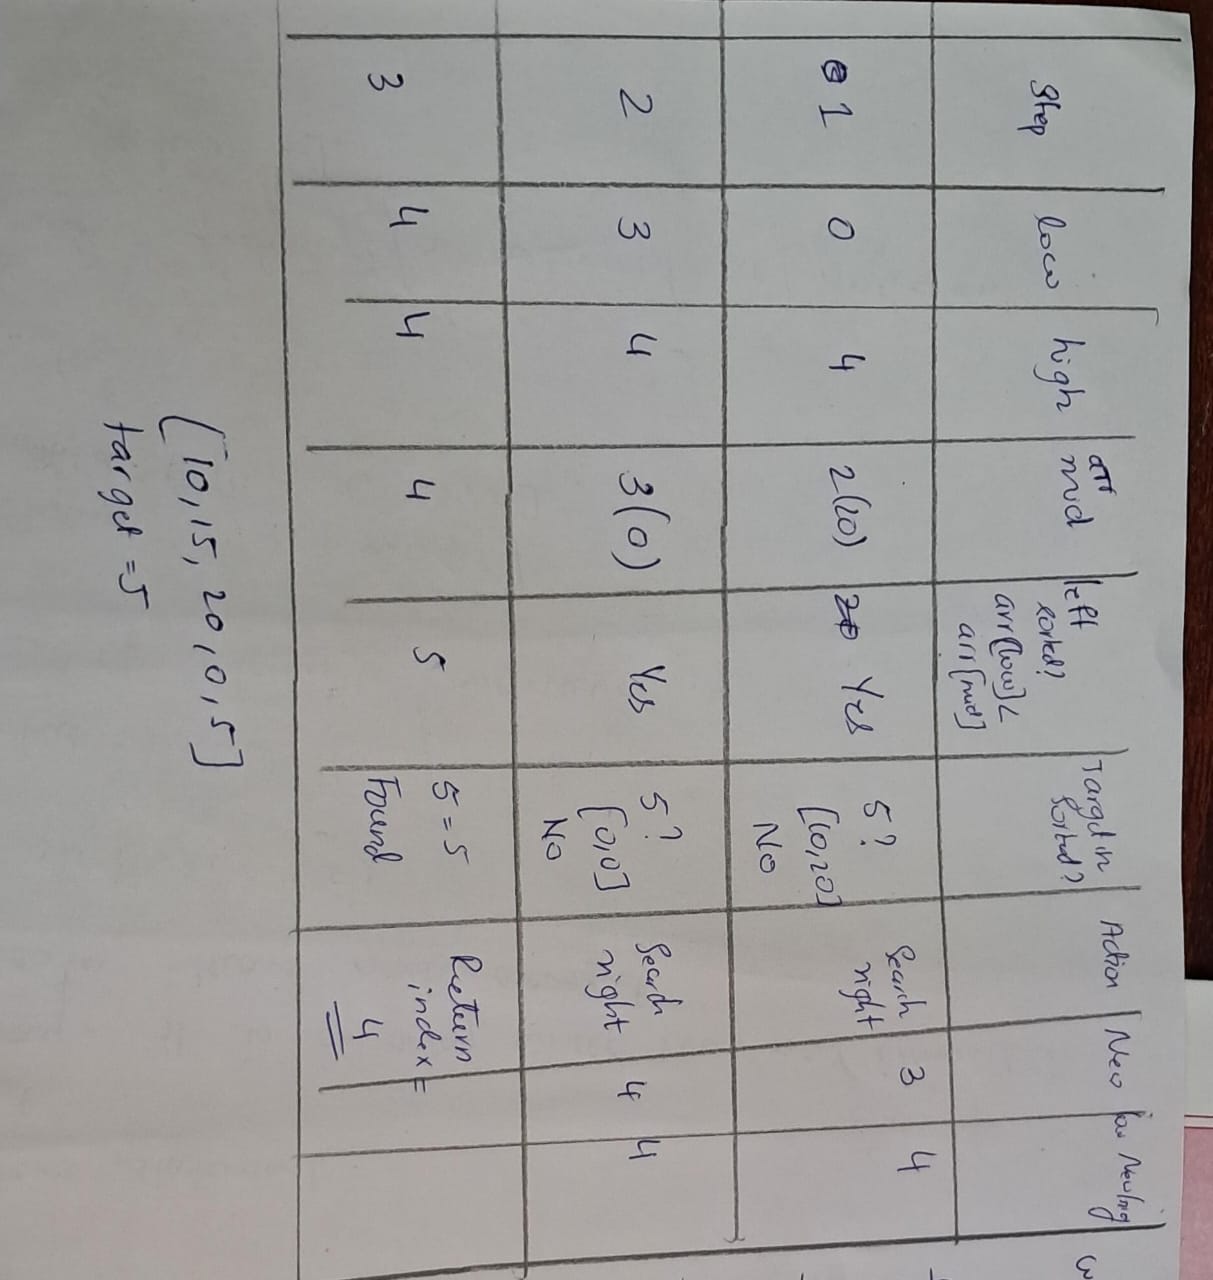 Step low high arr mid left sorted? arr[low]< arr[mid] Target in sorted? Action New low New hig
1 0 4 2(20) Yes 5? [10,20] No Search right 3 4
2 3 4 3(0) Yes 5? [0,0] No Search right 4 4
3 4 4 4 5 5=5 Found Return index = 4
[10,15,20,0,5]
target =5